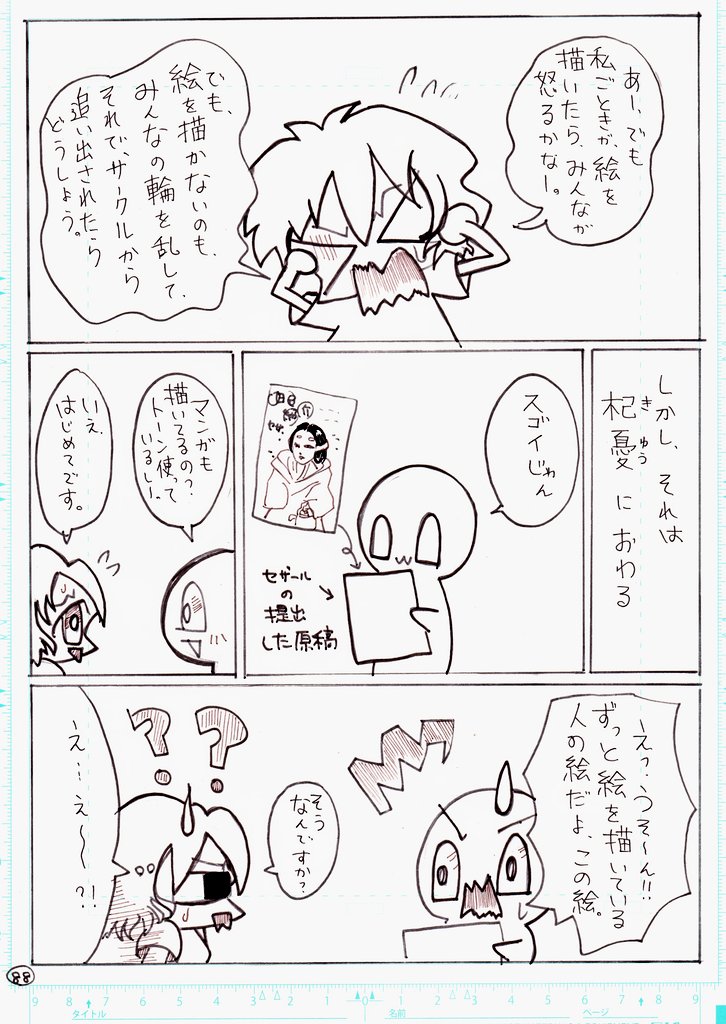 あー、でも
私ごときが、絵を
描いたら、みんなが
怒るかなー。
でも、
絵を描かないのも、
みんなの輪を乱して、
それで、サークルから
追い出されたら
どうしよう。
しかし、それは
杞憂におわる
きゆう
スゴイじゃん
セザール
の
提出
した原稿
マンガも
描いてるの?
トーン使って
いるし!
いえ、
はじめてです。
えっ、うそ〜ん!!
ずっと絵を描いている
人の絵だよ、この絵。
そう
なんですか?
??
え…え〜〜?!
88
9 8 7 6 5 4 3 2 1 0 1 2 3 4 5 6 7 8 9
タイトル
名前
ページ